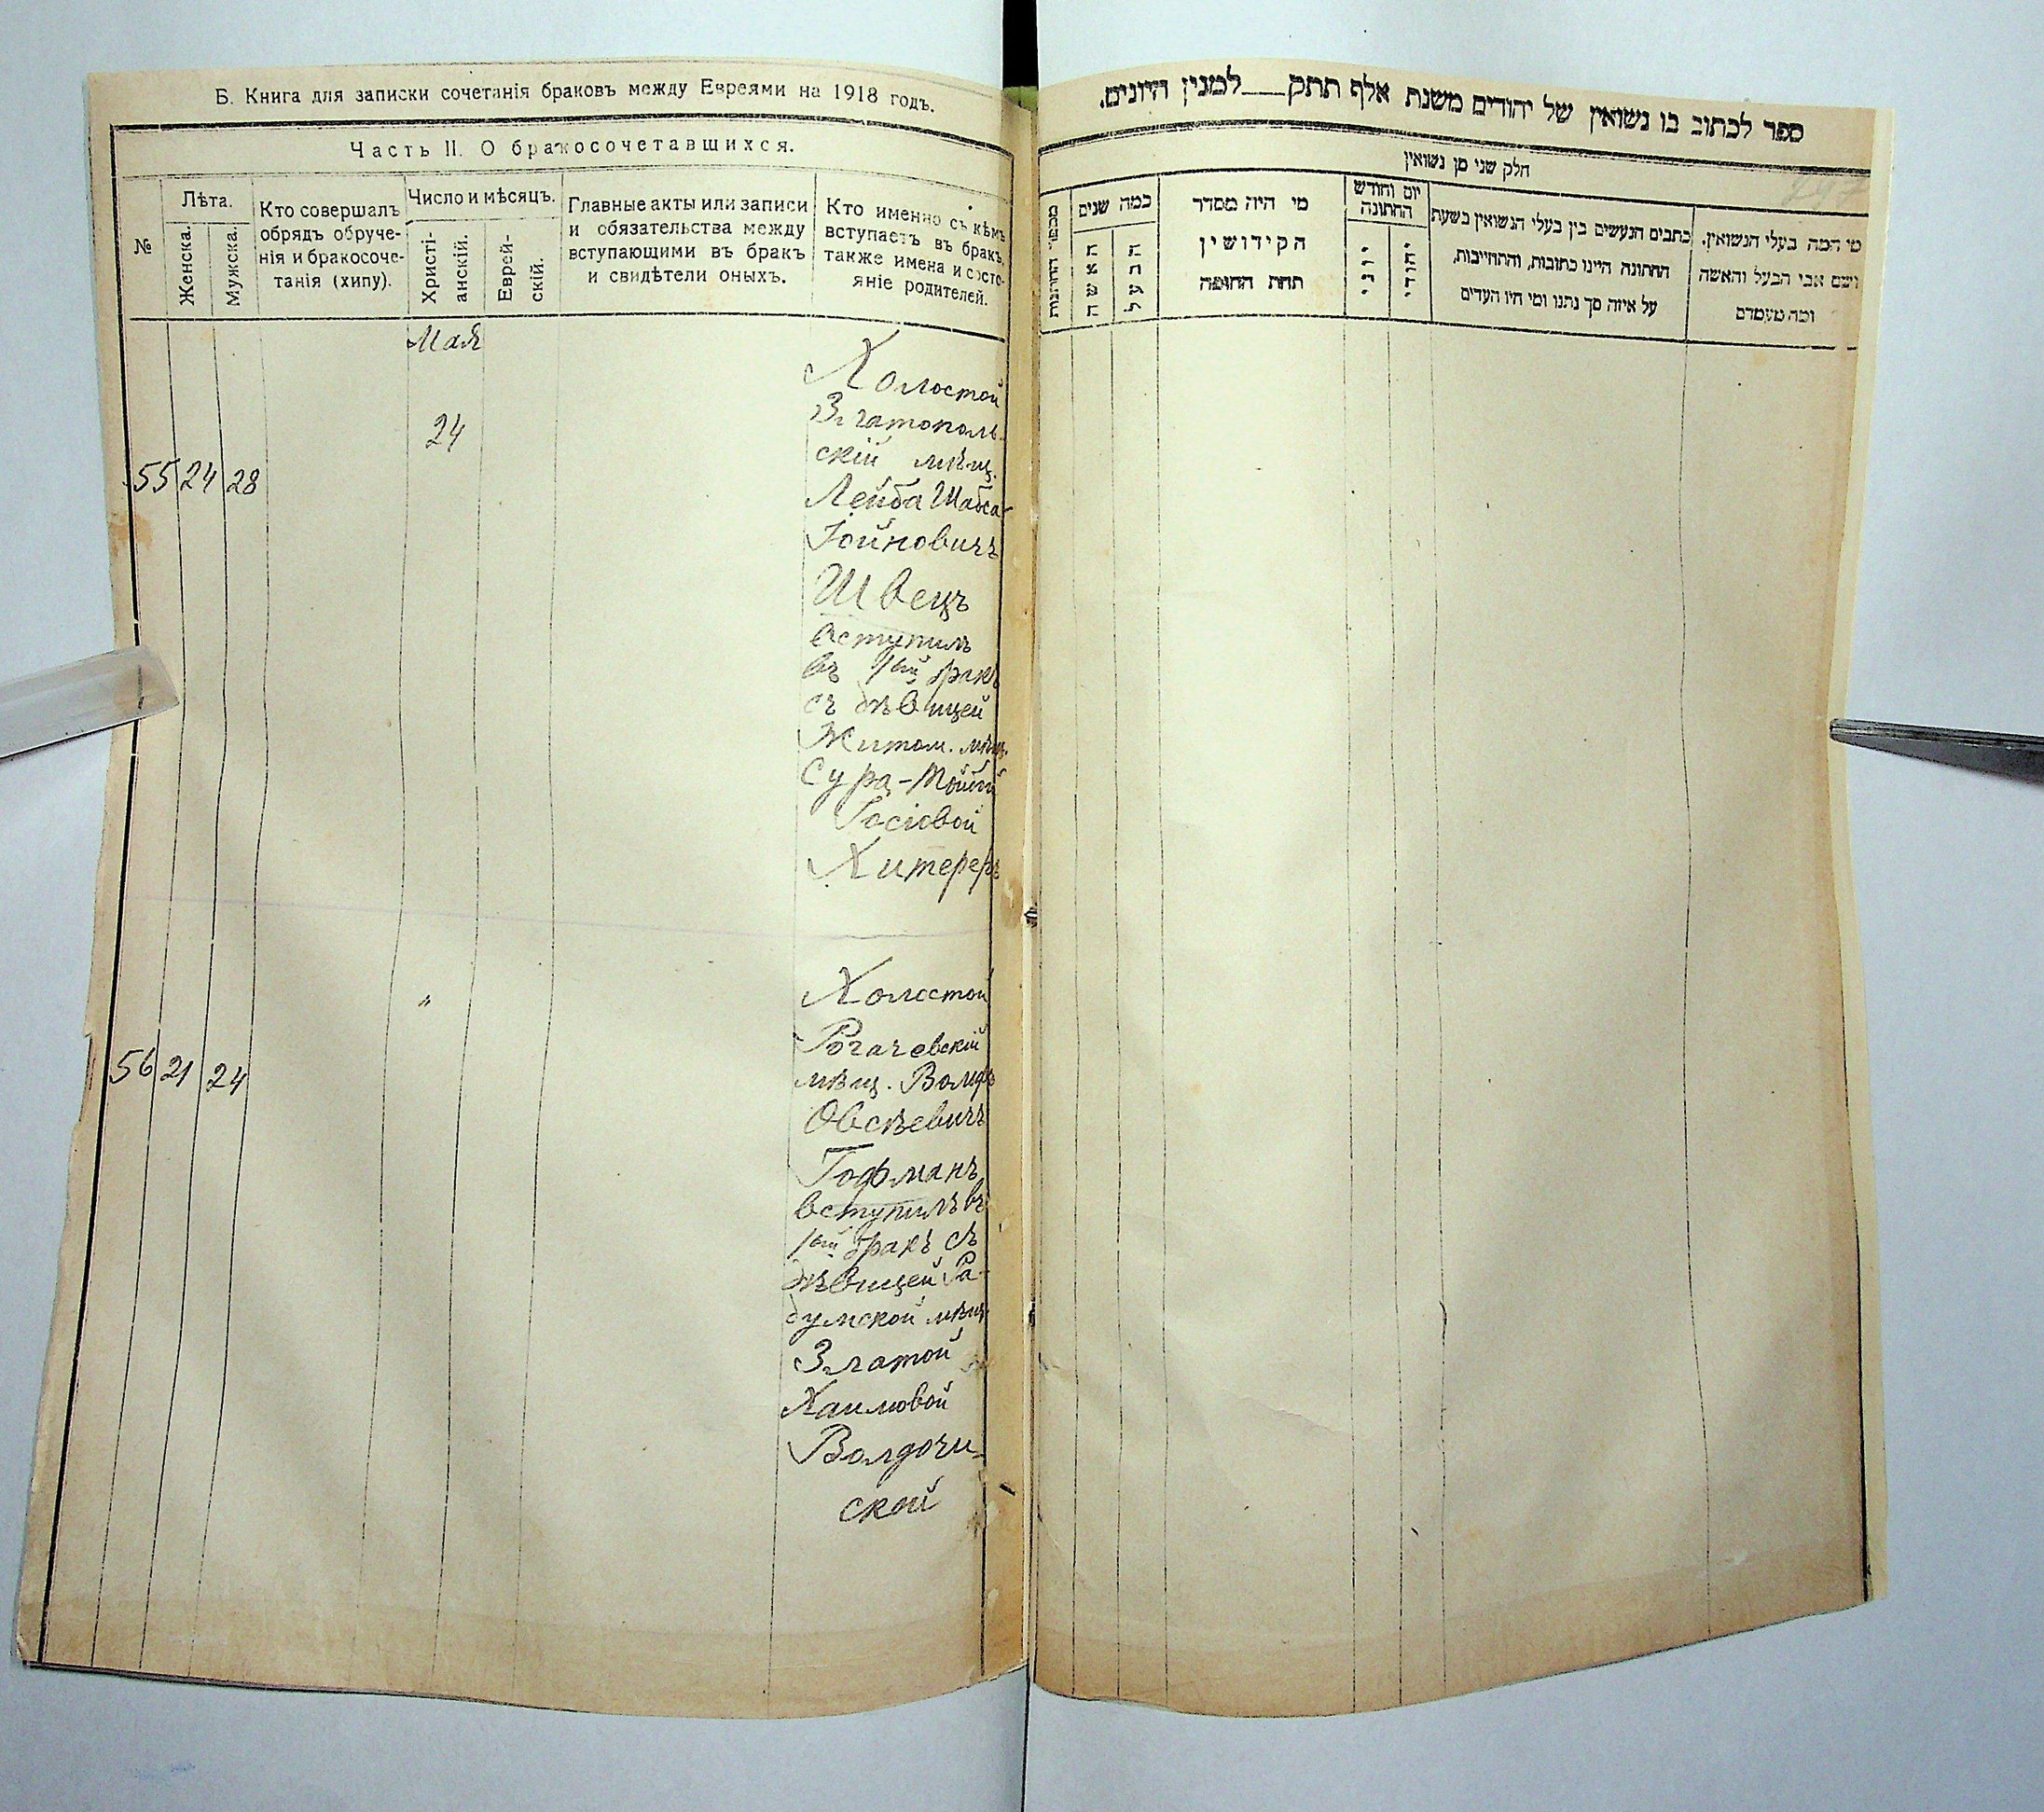 Б. Книга для записки сочетанія браковъ между Евреями на 1918 годъ.
Часть II. О бракосочетавшихся.
№
Лѣта.
Женска.
Мужска.
Кто совершалъ
обрядъ обруче-
нія и бракосоче-
танія (хипу).
Число и мѣсяцъ.
Христі-
анскій.
Еврей-
скій.
Главные акты или записи
и обязательства между
вступающими въ бракъ
и свидѣтели оныхъ.
Кто именно съ кѣмъ
вступаетъ въ бракъ,
также имена и состо-
яніе родителей.
Мая
24
55 24 28
Холостой
Златополь-
скій мѣщ.
Лейба Шабса-
Іойновичъ
Швецъ
вступилъ
въ 1ый бракъ
съ дѣвицей
Житом. мѣщ.
Сура-
Хитеръ
"
56 21 24
Холостой
Рогачевскій
мѣщ. Вольфъ
Овсѣевичъ
Гофманъ
вступилъ въ
1ый бракъ съ
дѣвицей Ра-
домской мѣщ.
Златой
Хаимовой
ской
ספר לכתוב בו נשואין של יהודים משנת אלף תתק___למנין היונים.
חלק שני מן נשואין
מספר החתונות
כמה שנים
האשה
הבעל
מי היה מסדר
הקידושין
תחת החופה
יום וחודש
החתונה
יוני
יהודי
כתבים הנעשים בין בעלי הנשואין בשעת
החתונה היינו כתובות, והתחייבות,
על איזה סך נתנו ומי היו העדים
מי המה בעלי הנשואין,
ושם אבי הבעל והאשה
ומה מעמדם